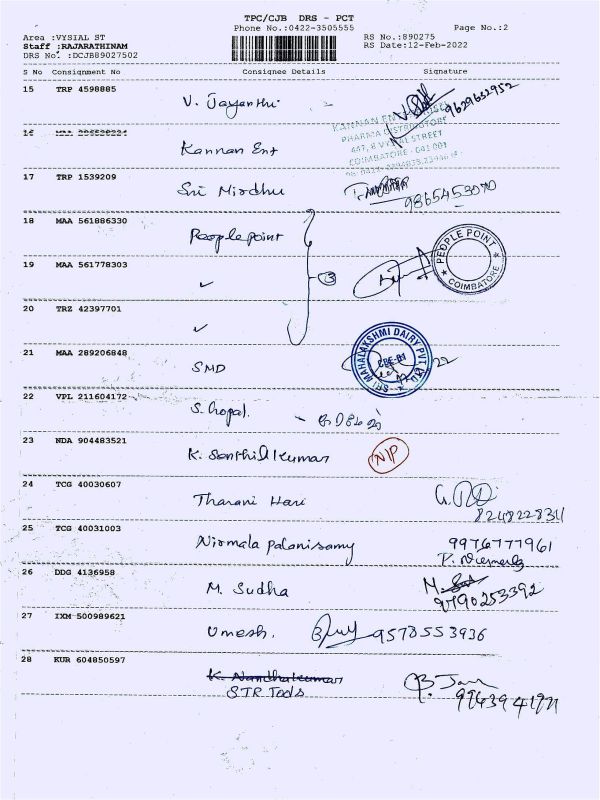 TPC/CJB DRS - PCT
Phone No.:0422-3505555
Page No.:2
Area :VYSIAL ST
RS No.:890275
Staff :RAJARATHINAM
RS Date:12-Feb-2022
DRS No. :DCJB89027502
S No Consignment No Consignee Details Signature
15 TRP 4598885
V. Jayanthi
9629632952
16
Kannan Ent
PHARMA DISTRIBUTORS
447, 8 VYSIAL STREET
COIMBATORE - 641 001
17 TRP 1539209
Sri Mirdhu
18 MAA 561886330
Peoplepoint
PEOPLE POINT
COIMBATORE
19 MAA 561778303
3
20 TRZ 42397701
21 MAA 289206848
SMD
SRI MAHALAKSHMI DAIRY PVT LTD
22 VPL 211604172
S. Gopal.
23 NDA 904483521
K. Senthilkumar
NIP
24 TCG 40030607
Tharani Hari
8248228311
25 TCG 40031003
Nirmala Palanisamy
9976777961
26 DDG 4136958
M. Sudha
9790253392
27 IXM 500989621
Umesh. 9578553936
28 KUR 604850597
K. Nandhakumar
STR Tools